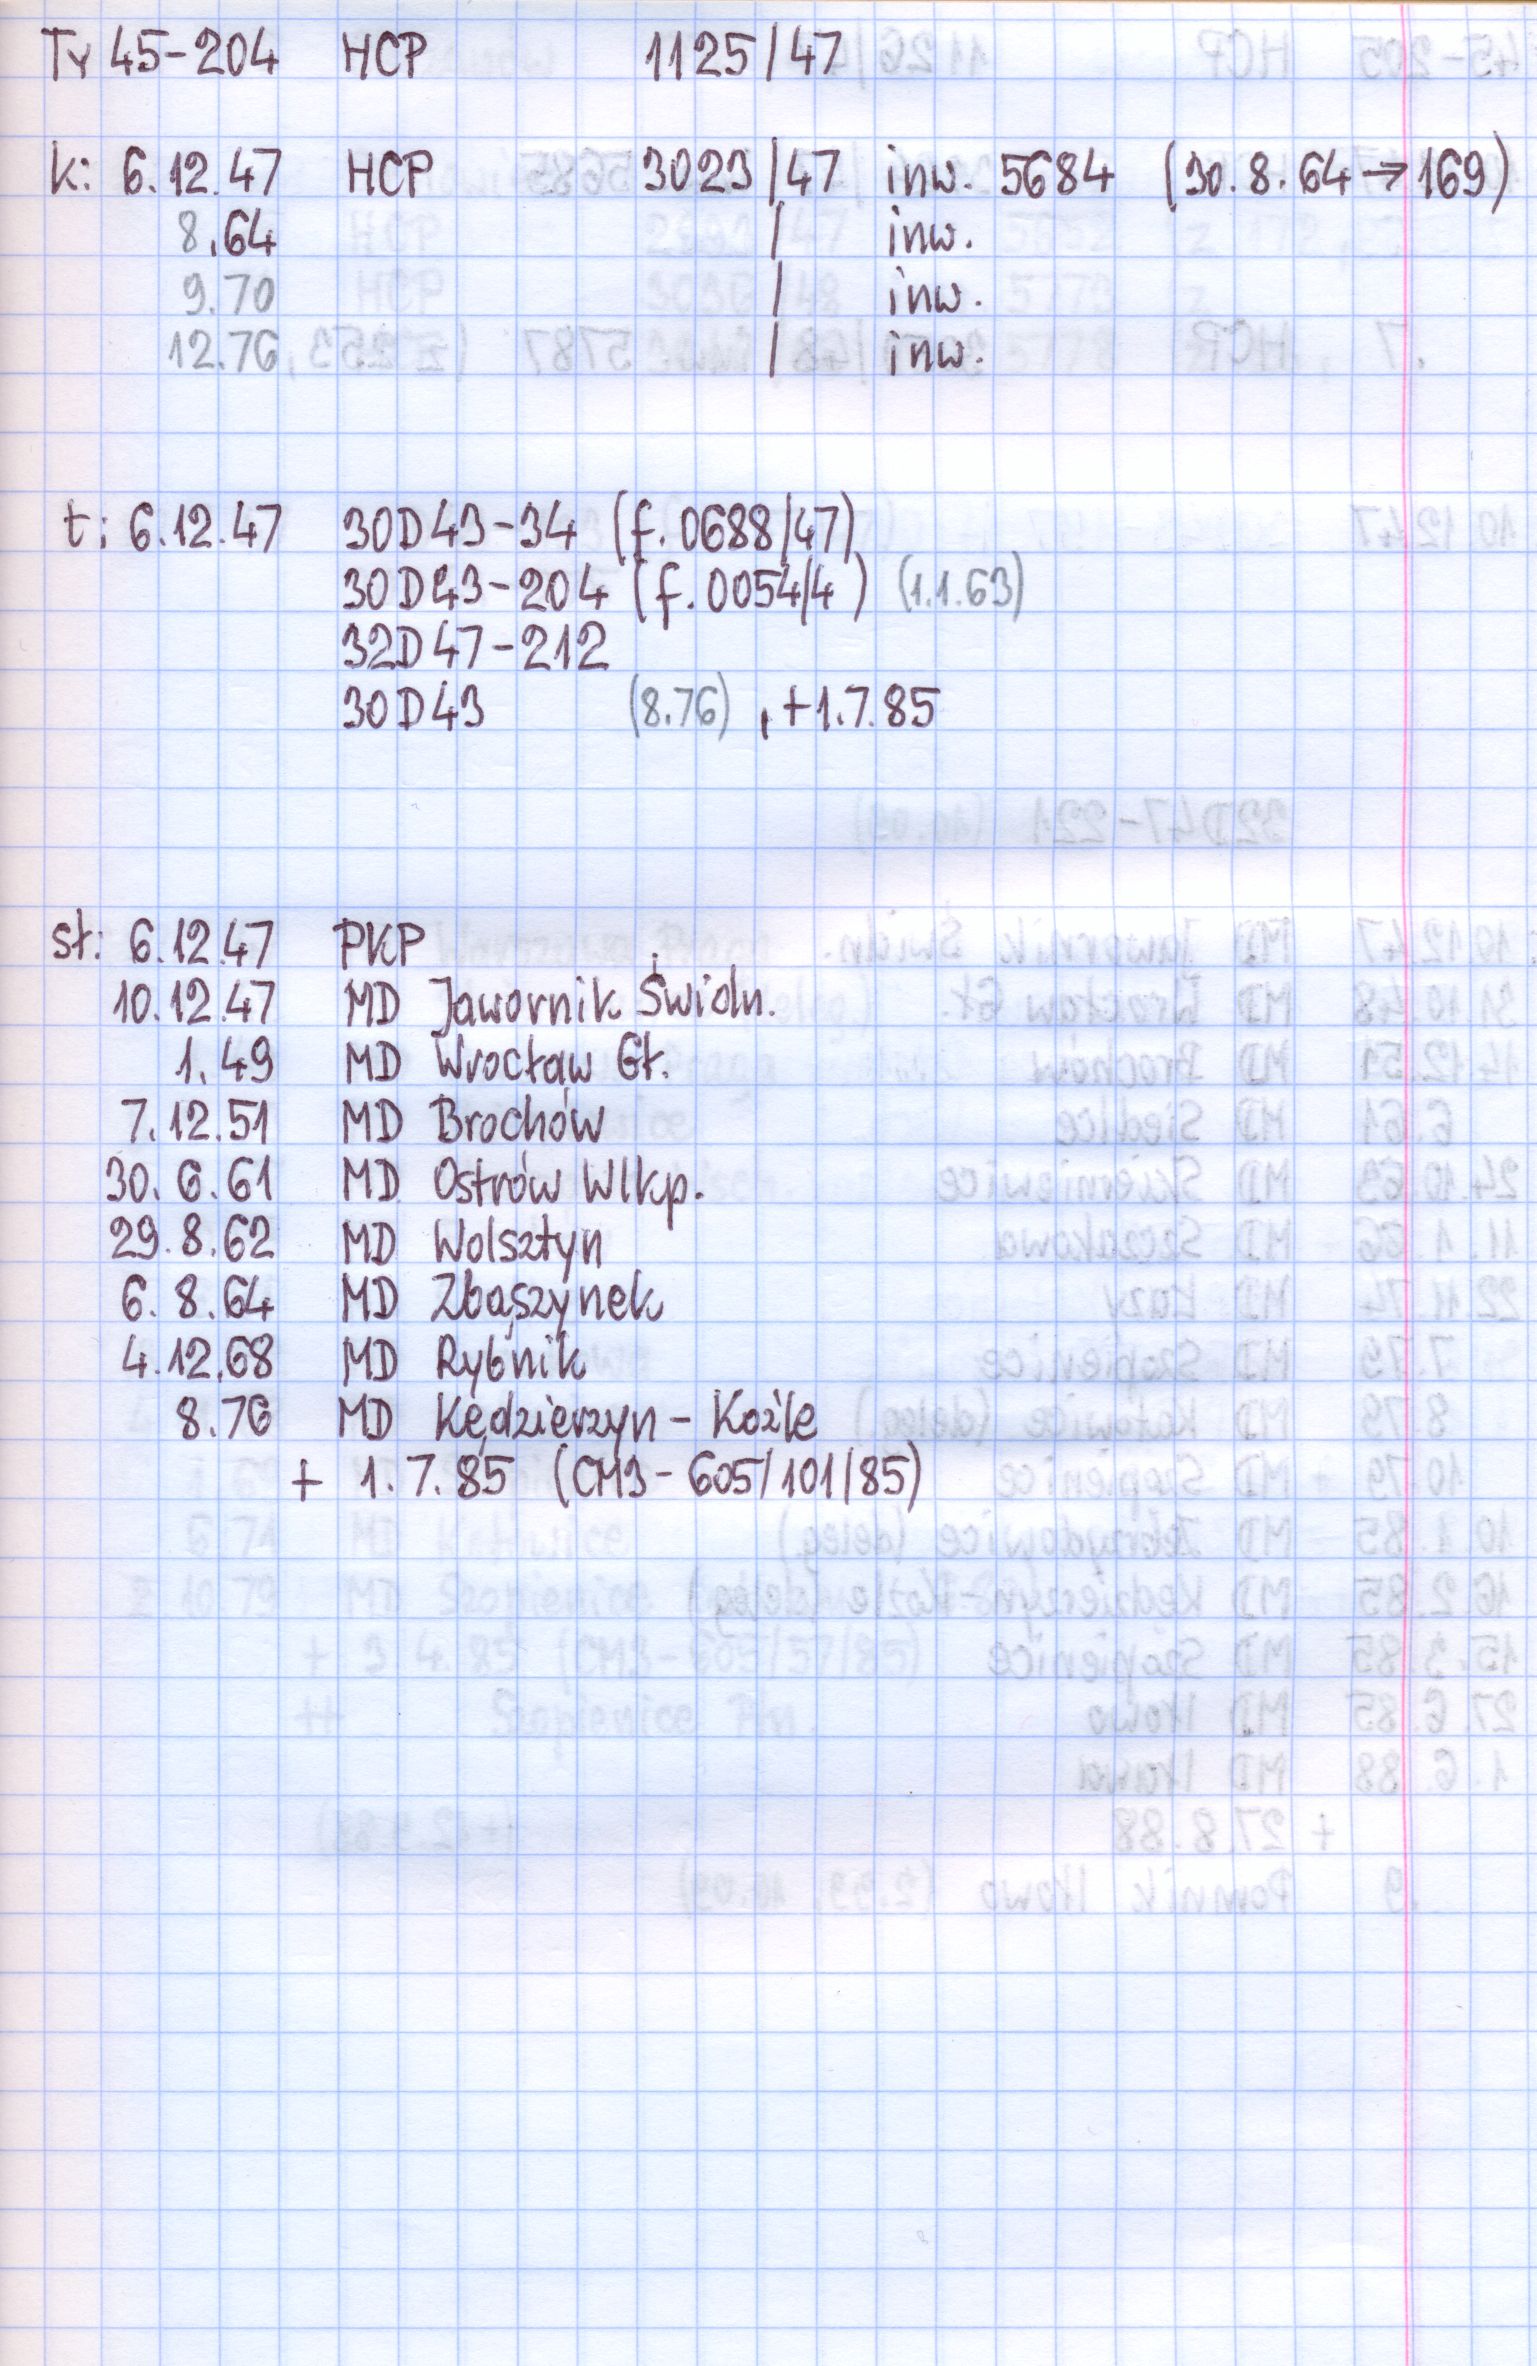 Ty 45-204 HCP 1125/47
k: 6.12.47 HCP 3023/47 inw. 5684 (30.8.64→169)
8.64 / inw.
9.70 / inw.
12.76 / inw.
t: 6.12.47 30D43-34 (f.0688/47)
30D43-204 (f.0054/4 ) (1.1.63)
32D47-212
30D43 (8.76) , +1.7.85
st: 6.12.47 PKP
10.12.47 MD Jawornik Świdn.
1.49 MD Wrocław Gł.
7.12.51 MD Brochów
30.6.61 MD Ostrów Wlkp.
29.8.62 MD Wolsztyn
6.8.64 MD Zbąszynek
4.12.68 MD Rybnik
8.76 MD Kędzierzyn - Koźle
+ 1.7.85 (CM3-605/101/85)